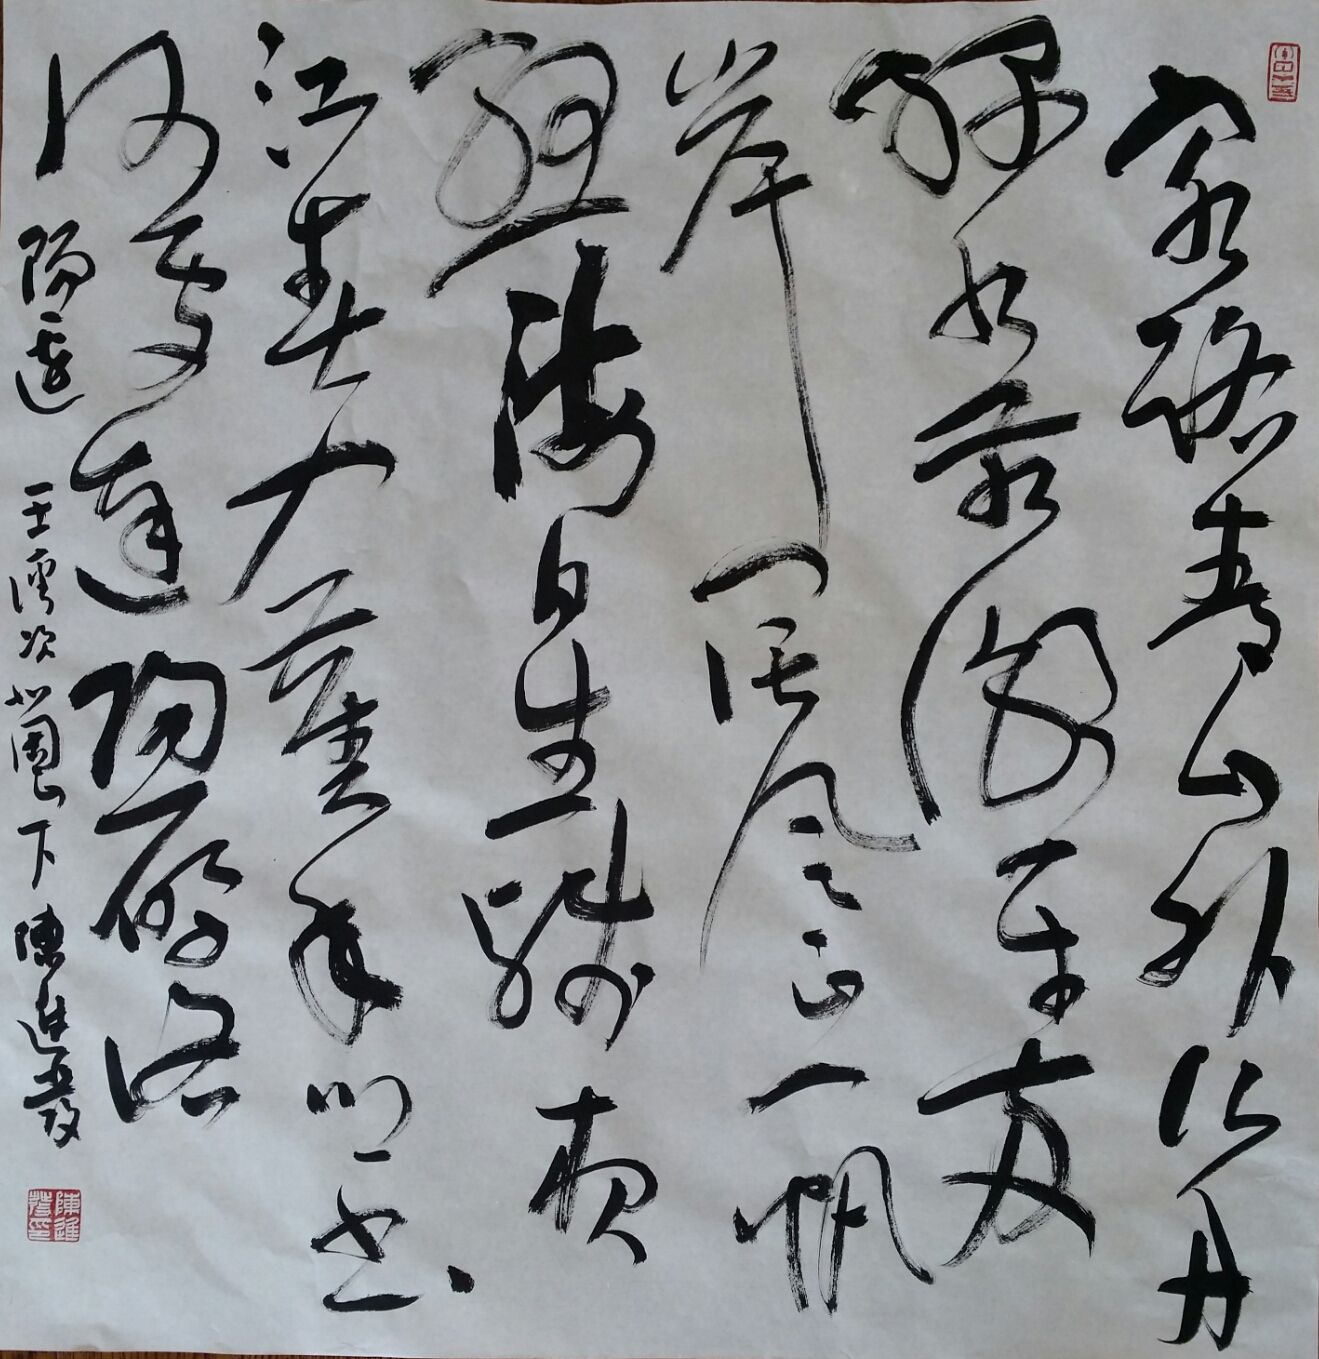 客路青山外行舟
綠水前潮平兩
岸闊風正一帆
懸海日生殘夜
江春入舊年鄉書
何處達歸雁洛
陽邊 王灣次北固山下 陳進發